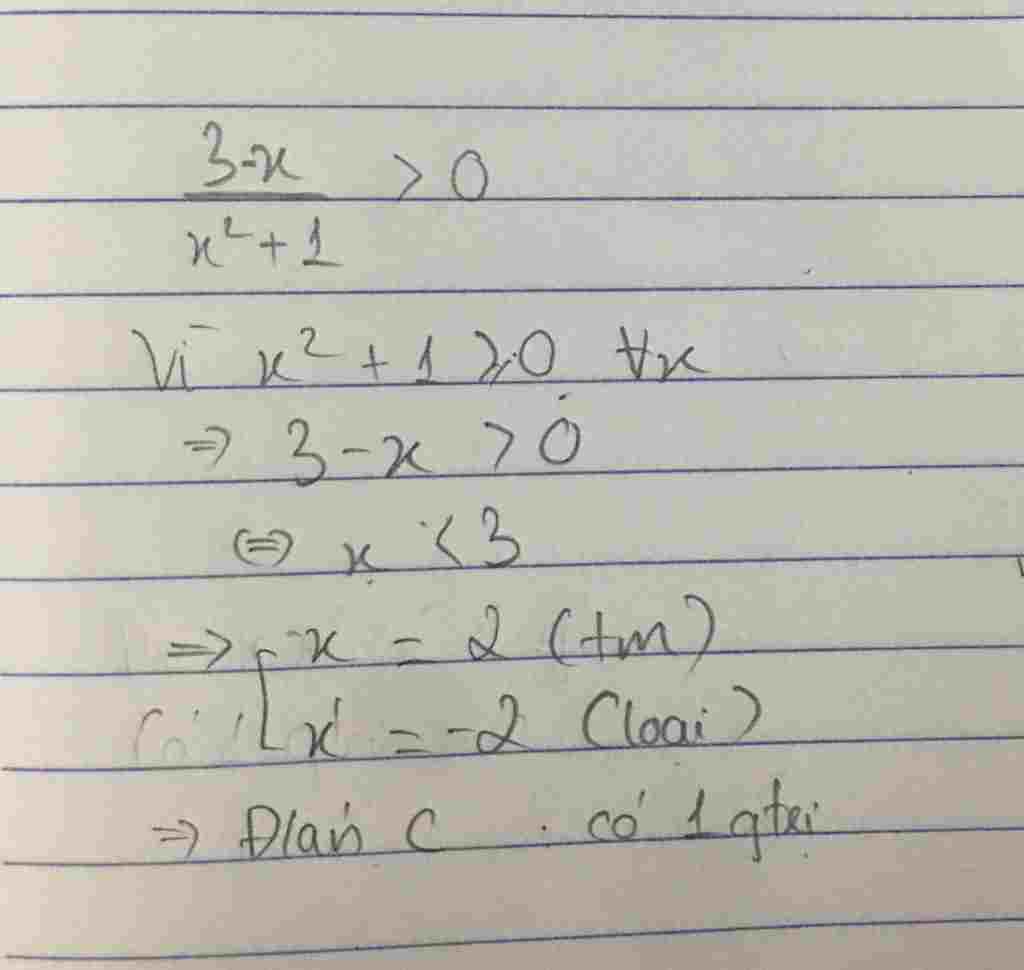 3-x / x² + 1 > 0
Vì x² + 1 ≥ 0 ∀x
⇒ 3 - x > 0
⇔ x < 3
⇒ [ x = 2 (tm)
x = -2 (loại)
⇒ Đlán C . có 1 gtrị